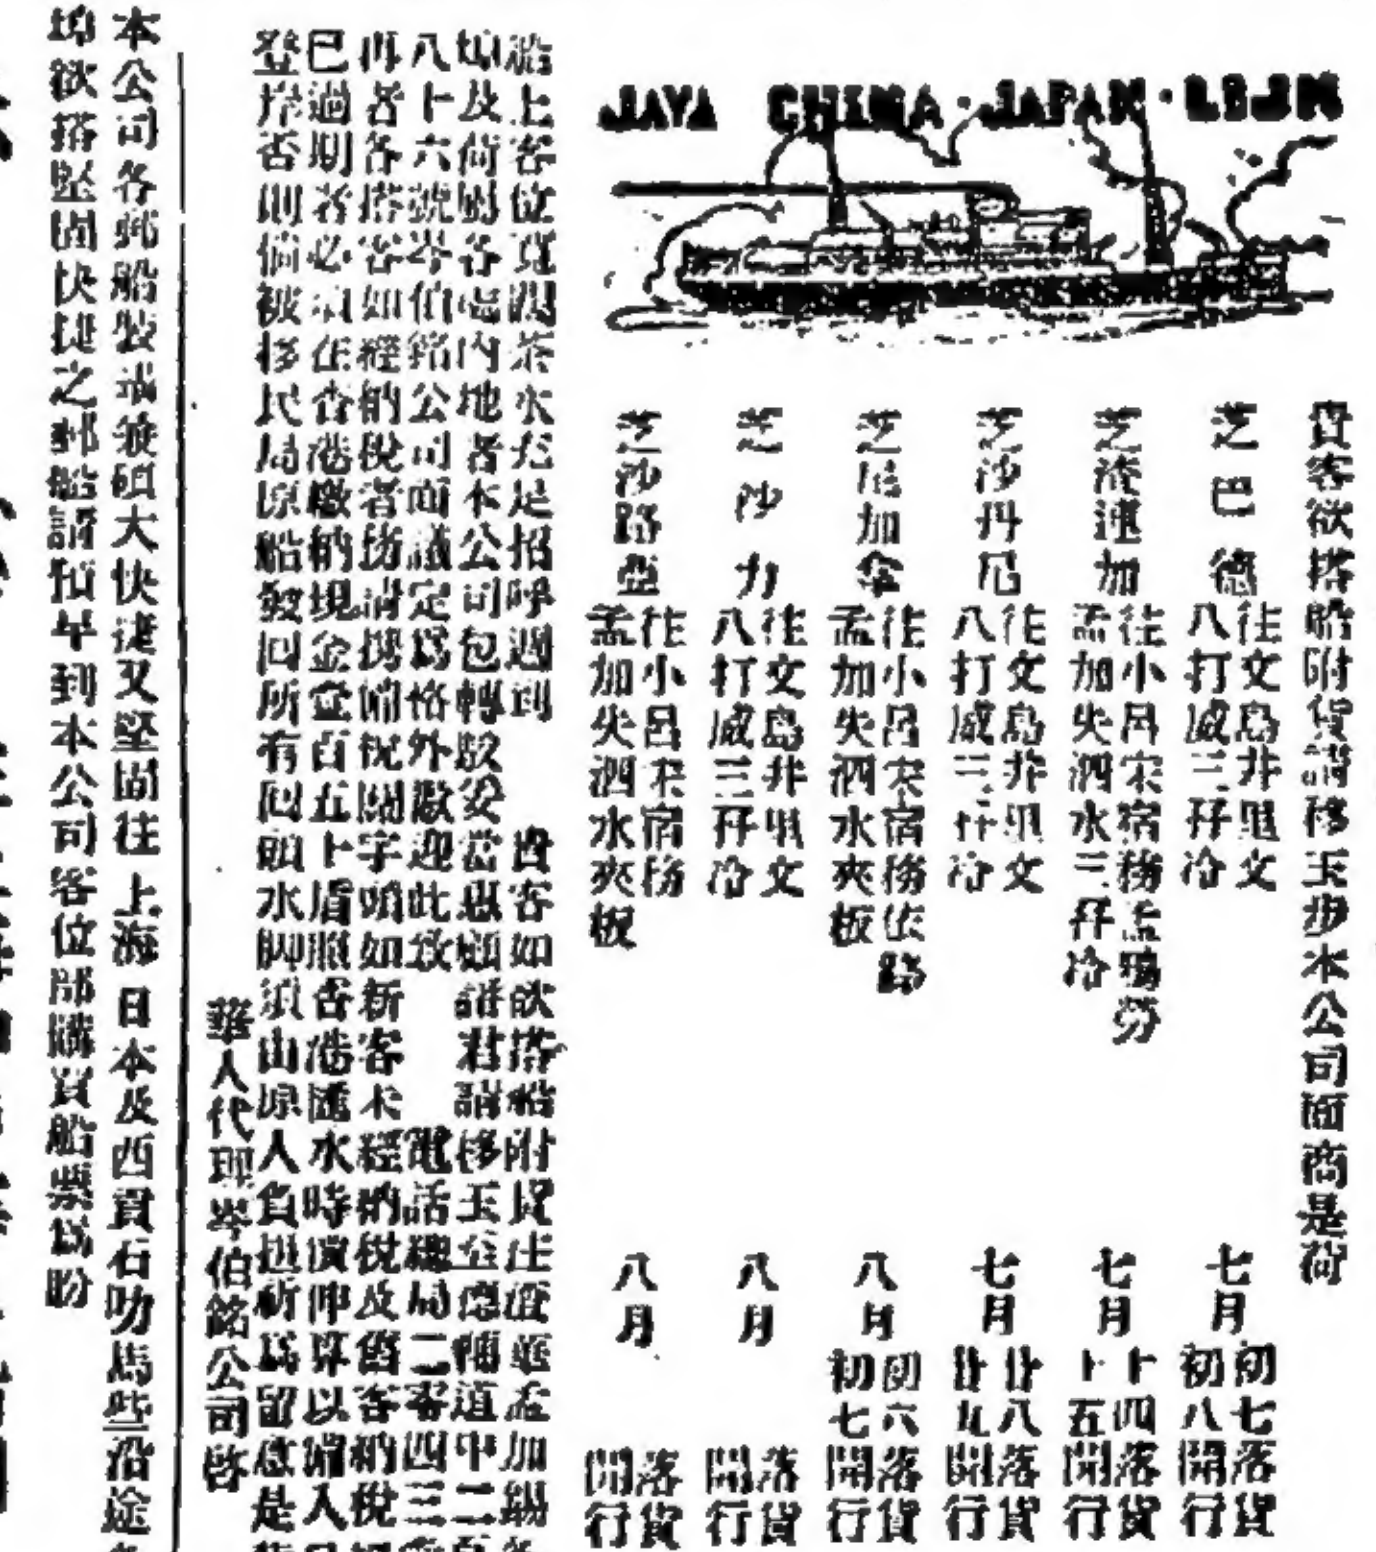 JAVA CHINA · JAPAN · LIJN
貴客欲搭船附貨請移玉步本公司面商是荷
芝巴德 往文島井里文八打威三孖冷 七月 初七落貨 初八開行
芝渣連加 往小呂宋宿務孟鴨勞孟加失泗水三孖冷 七月 十四落貨 十五開行
芝沙丹尼 往文島井里文八打威三孖冷 七月 廿八落貨 廿九開行
芝尼加拿 往小呂宋宿務依路孟加失泗水夾板 八月 初六落貨 初七開行
芝沙力 往文島井里文八打威三孖冷 八月 落貨 開行
芝沙路亞 往小呂宋宿務孟加失泗水夾板 八月 落貨 開行
船上客位寬濶茶水充足招呼週到 貴客如欲搭船附貨往渣華孟加錫
埠及荷屬各內地者本公司包轉駁妥當惠顧諸君請移玉至德輔道中二
八十六號岑伯銘公司面議定爲格外歡迎此致 電話總局二零四三
再者各搭客如經納稅者務請携備稅關字頭如新客未經納稅及舊客納稅
已過期者必須在香港繳納現金壹百五十盾照香港匯水時價伸算以備入
登岸否則倘被移民局原船發回所有回頭水脚須由原人負担祈爲留意是
華人代理岑伯銘公司啓
本公司各郵船裝成 大快捷又堅固往 上海 日本及西貢石叻馬些沿途
埠欲搭堅固快捷之郵船請預早到本公司客位部購買船票爲盼